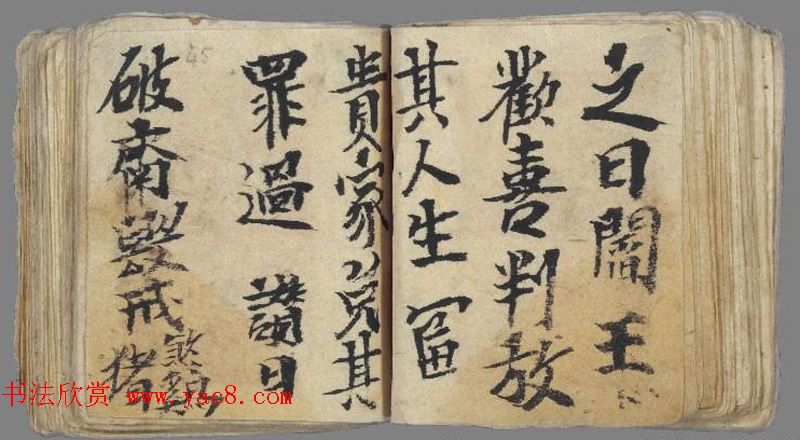 之日閻王
歡喜判放
其人生冨
貴家免其
罪過 讚曰
破齋毀戒煞鷄猪
45
书法欣赏 www.yac8.com